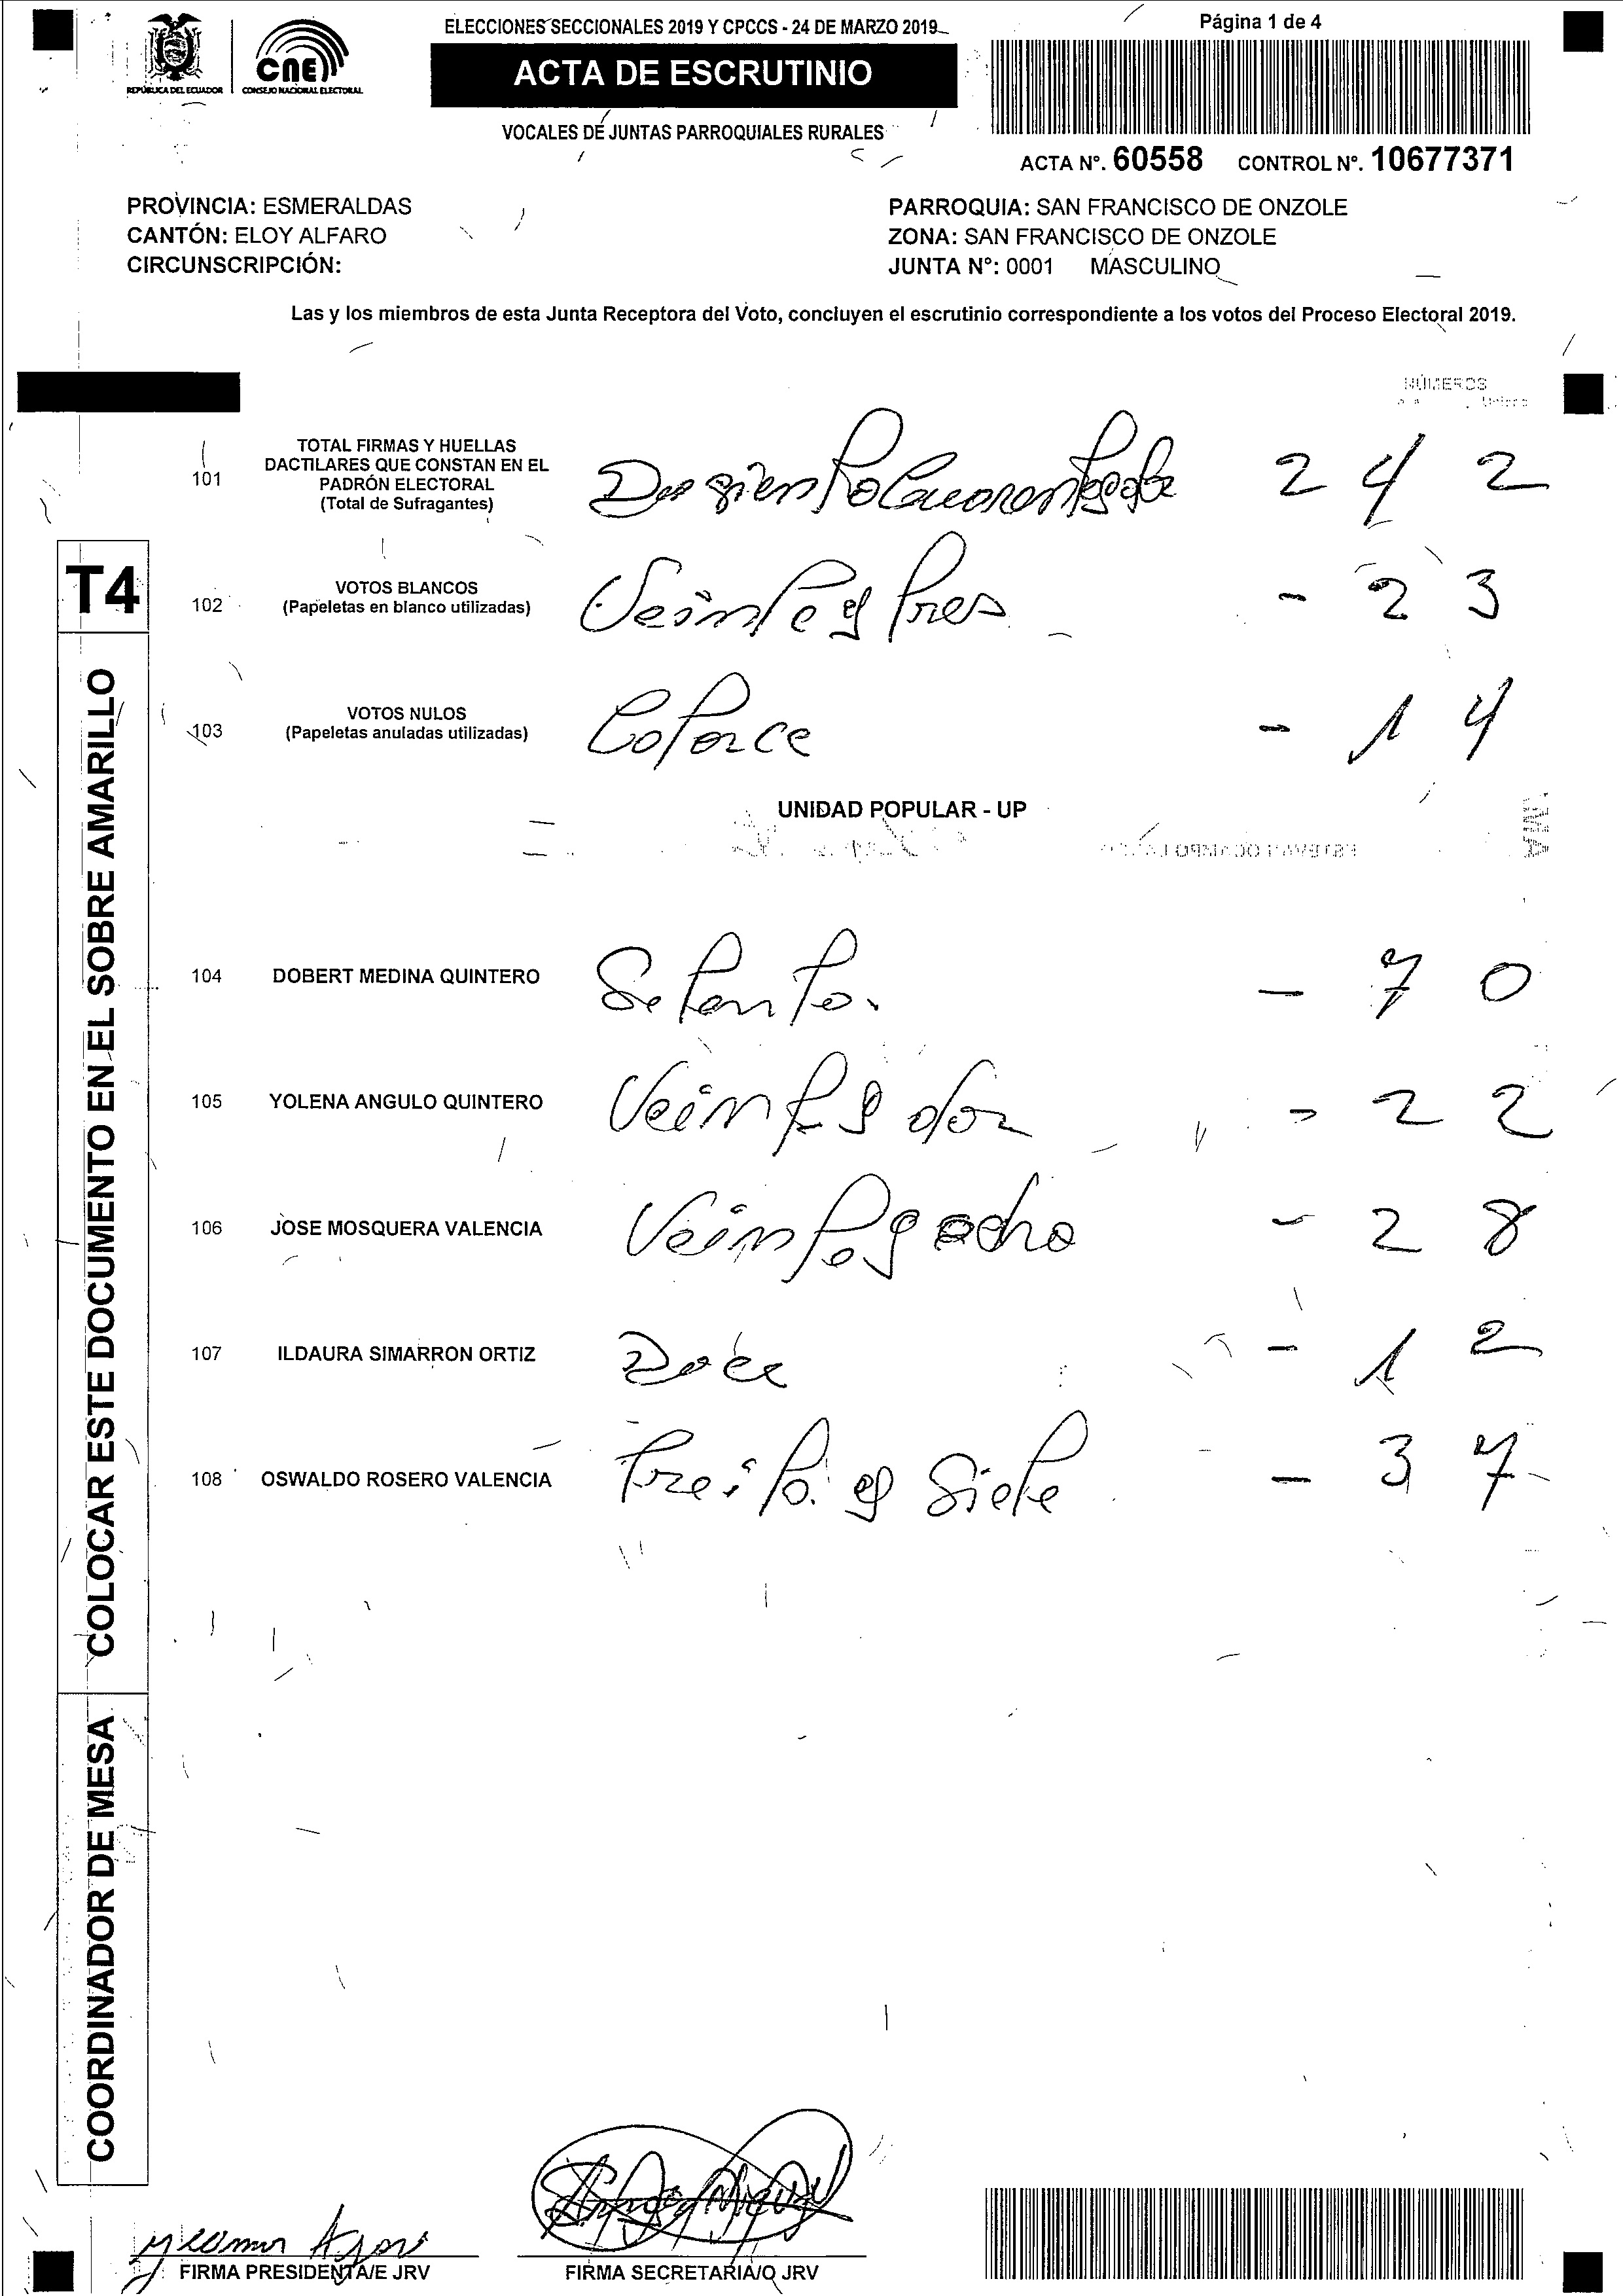 ELECCIONES SECCIONALES 2019 Y CPCCS - 24 DE MARZO 2019
Página 1 de 4
REPÚBLICA DEL ECUADOR
CNE
CONSEJO NACIONAL ELECTORAL
ACTA DE ESCRUTINIO
VOCALES DE JUNTAS PARROQUIALES RURALES
ACTA N°. 60558 CONTROL N°. 10677371
PROVINCIA: ESMERALDAS
CANTÓN: ELOY ALFARO
CIRCUNSCRIPCIÓN:
PARROQUIA: SAN FRANCISCO DE ONZOLE
ZONA: SAN FRANCISCO DE ONZOLE
JUNTA N°: 0001 MASCULINO
Las y los miembros de esta Junta Receptora del Voto, concluyen el escrutinio correspondiente a los votos del Proceso Electoral 2019.
NÚMEROS
101 TOTAL FIRMAS Y HUELLAS
DACTILARES QUE CONSTAN EN EL
PADRÓN ELECTORAL
(Total de Sufragantes)
242
102 VOTOS BLANCOS
(Papeletas en blanco utilizadas)
Veinte y tres - 23
103 VOTOS NULOS
(Papeletas anuladas utilizadas)
Catorce - 14
UNIDAD POPULAR - UP
104 DOBERT MEDINA QUINTERO Setenta. - 70
105 YOLENA ANGULO QUINTERO Veint y dos - 22
106 JOSE MOSQUERA VALENCIA Veinte y ocho - 28
107 ILDAURA SIMARRON ORTIZ Doce - 12
108 OSWALDO ROSERO VALENCIA Treita y Siete - 37
T4
COLOCAR ESTE DOCUMENTO EN EL SOBRE AMARILLO
COORDINADOR DE MESA
FIRMA PRESIDENTA/E JRV
FIRMA SECRETARIA/O JRV